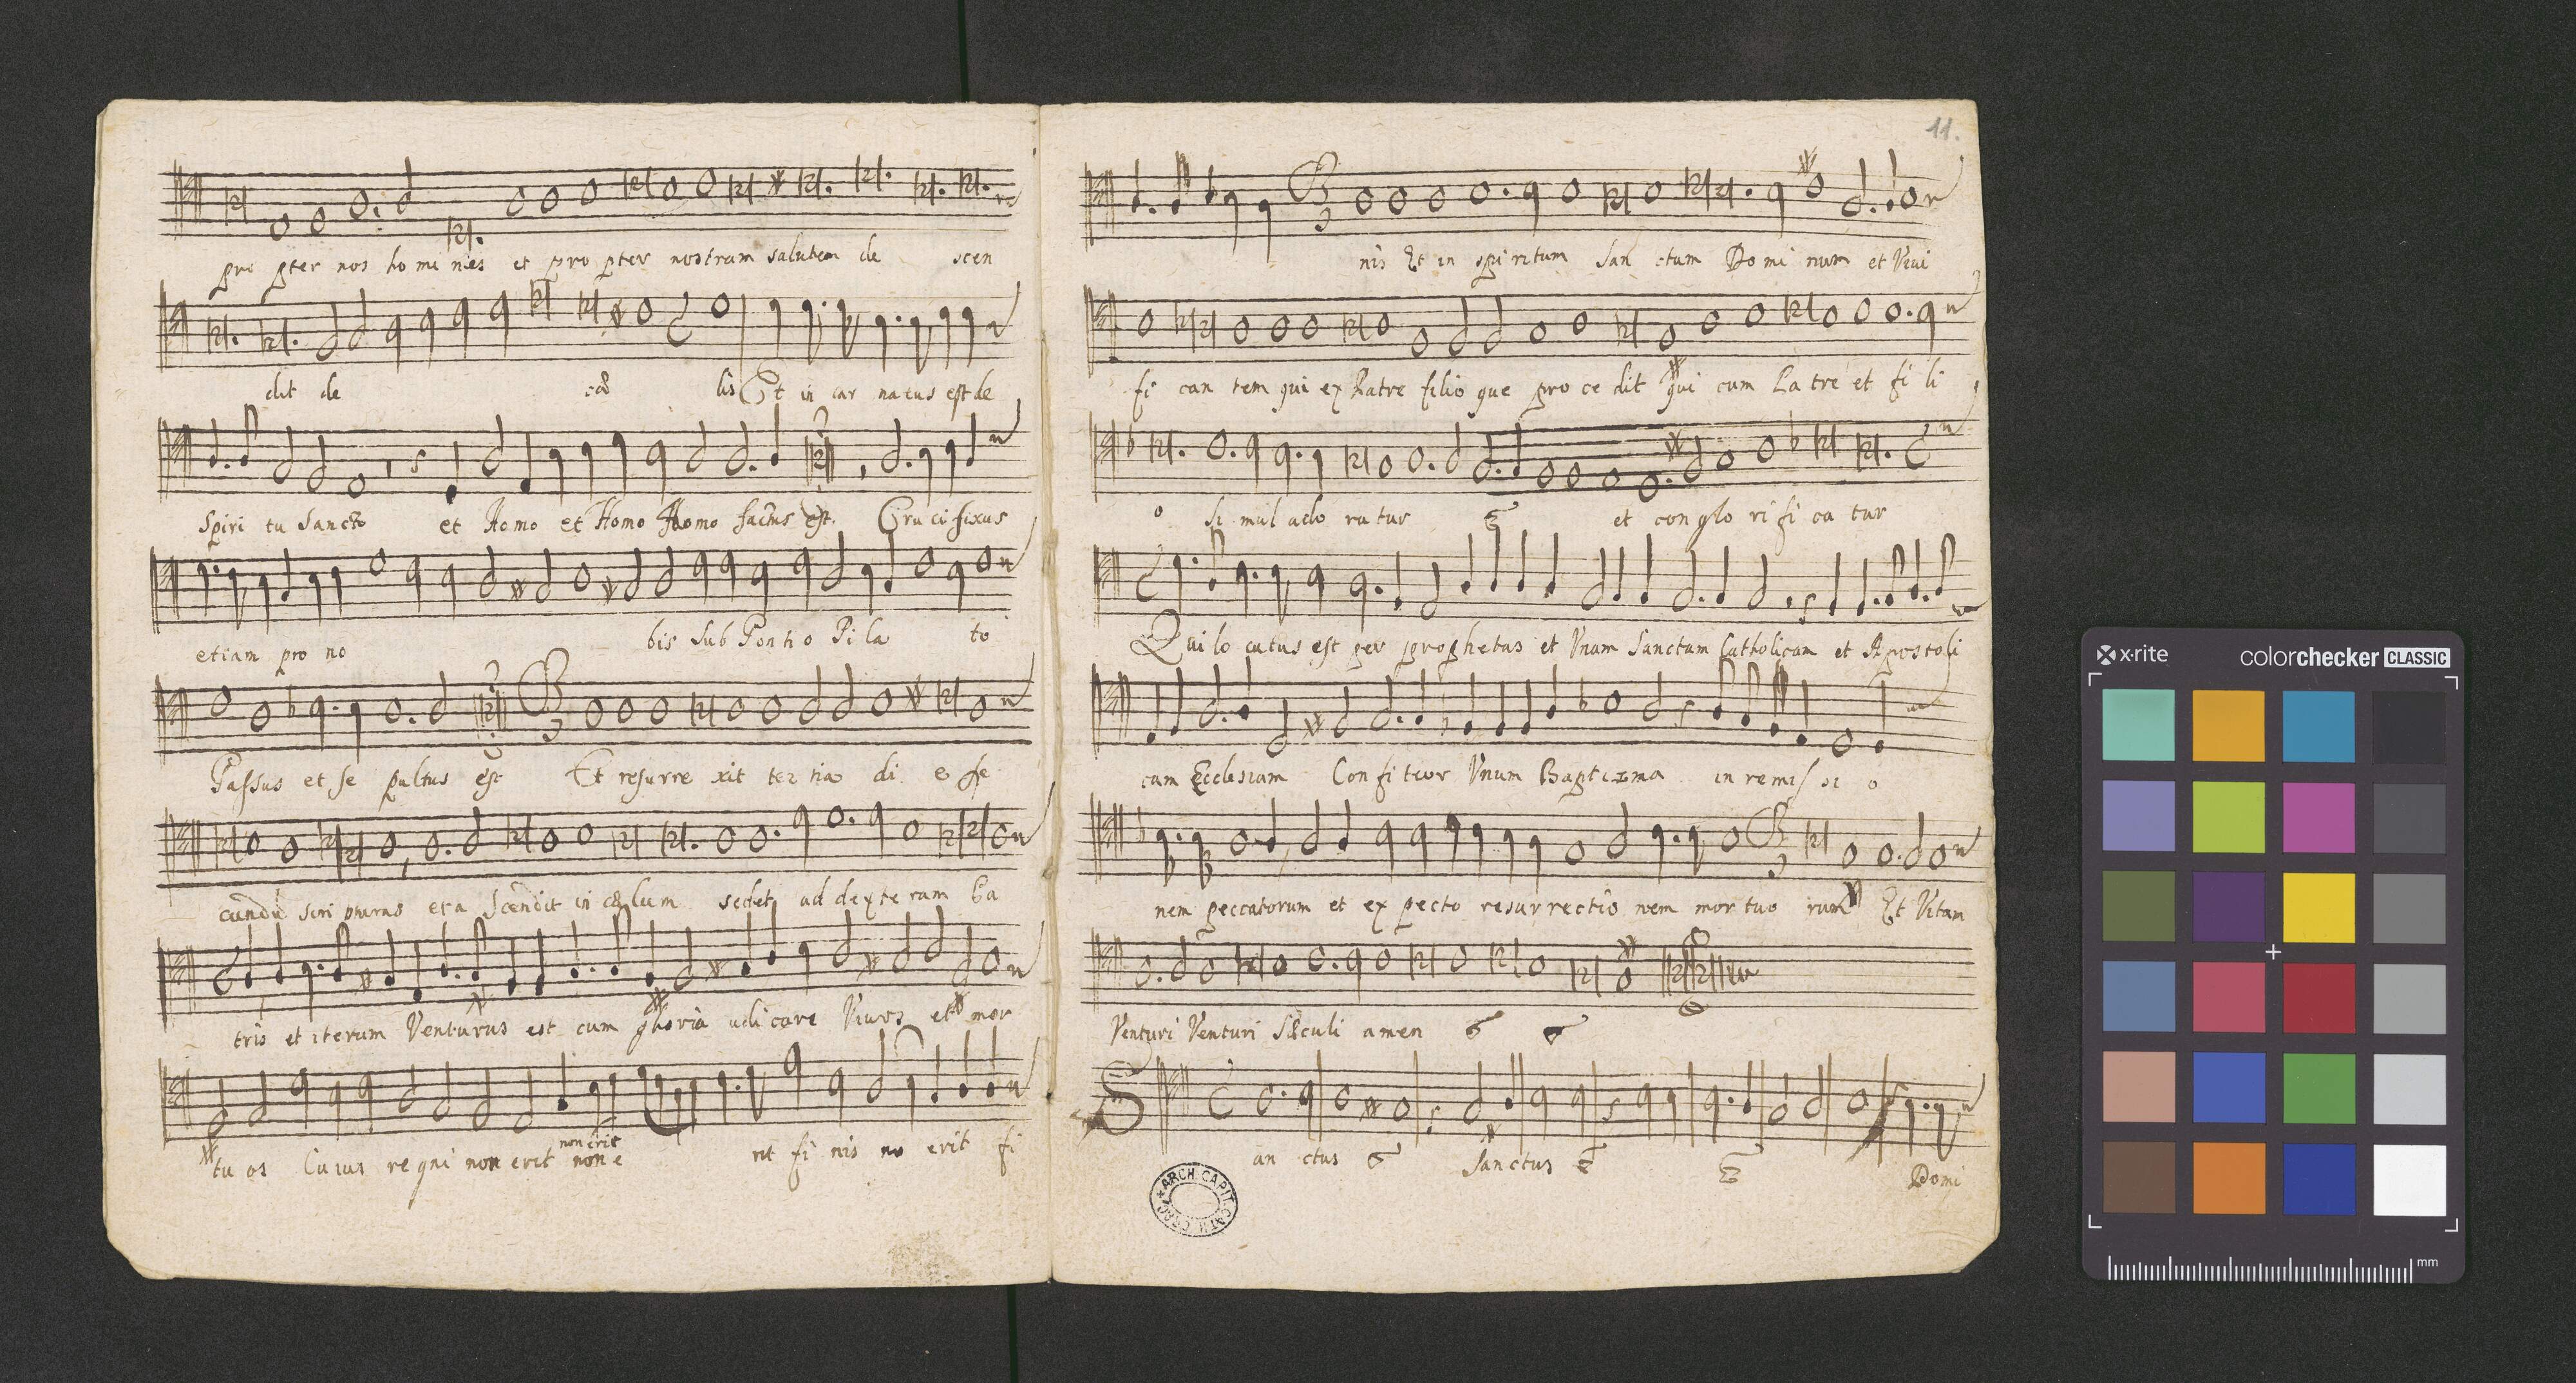 pro pter nos ho mi nes et pro pter nostram salutem de scen
dit de cæ lis Et in car natus est de
Spiri tu Sancto et Homo et Homo Homo factus est. Cru ci fixus
etiam pro no bis sub Ponti o Pi la to
Passus et se pultus est Et resurre xit ter tia di e se
cundū scri pturas et a scendit in cælum sedet ad dexte ram Pa
tris et iterum Venturus est cum gloria udi care Vivos et mor
non erit
tu os Cu ius re gni non erit non e rit fi nis no erit fi
11.
nis Et in spi ritum San ctum Do mi num et Vivi
fi can tem qui ex Patre filio que pro ce dit qui cum Pa tre et fi li
o si mul ado ra tur et con glo ri fi ca tur
Qui lo cutus est per prophetas et Vnam Sanctam Catholicam et Apostoli
cam Ecclesiam Con fi teor Vnum Baptisma in remis si o
nem peccatorum et ex pecto resurrectio nem mor tuo rum Et Vitam
Venturi Venturi Sæculi amen
San ctus Sanctus Domi
ARCH. CAPIT. CATH. CRAC.
x·rite colorchecker CLASSIC
mm